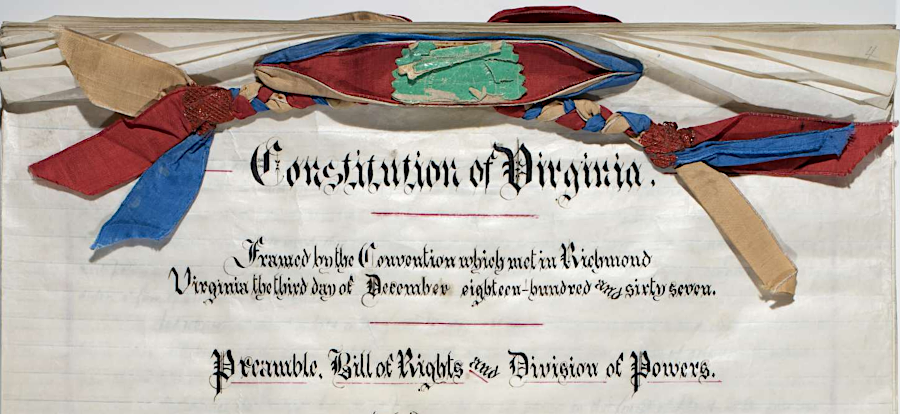 Constitution of Virginia.
Framed by the Convention which met in Richmond
Virginia the third day of December eighteen-hundred and sixty seven.
Preamble. Bill of Rights and Division of Powers.
4